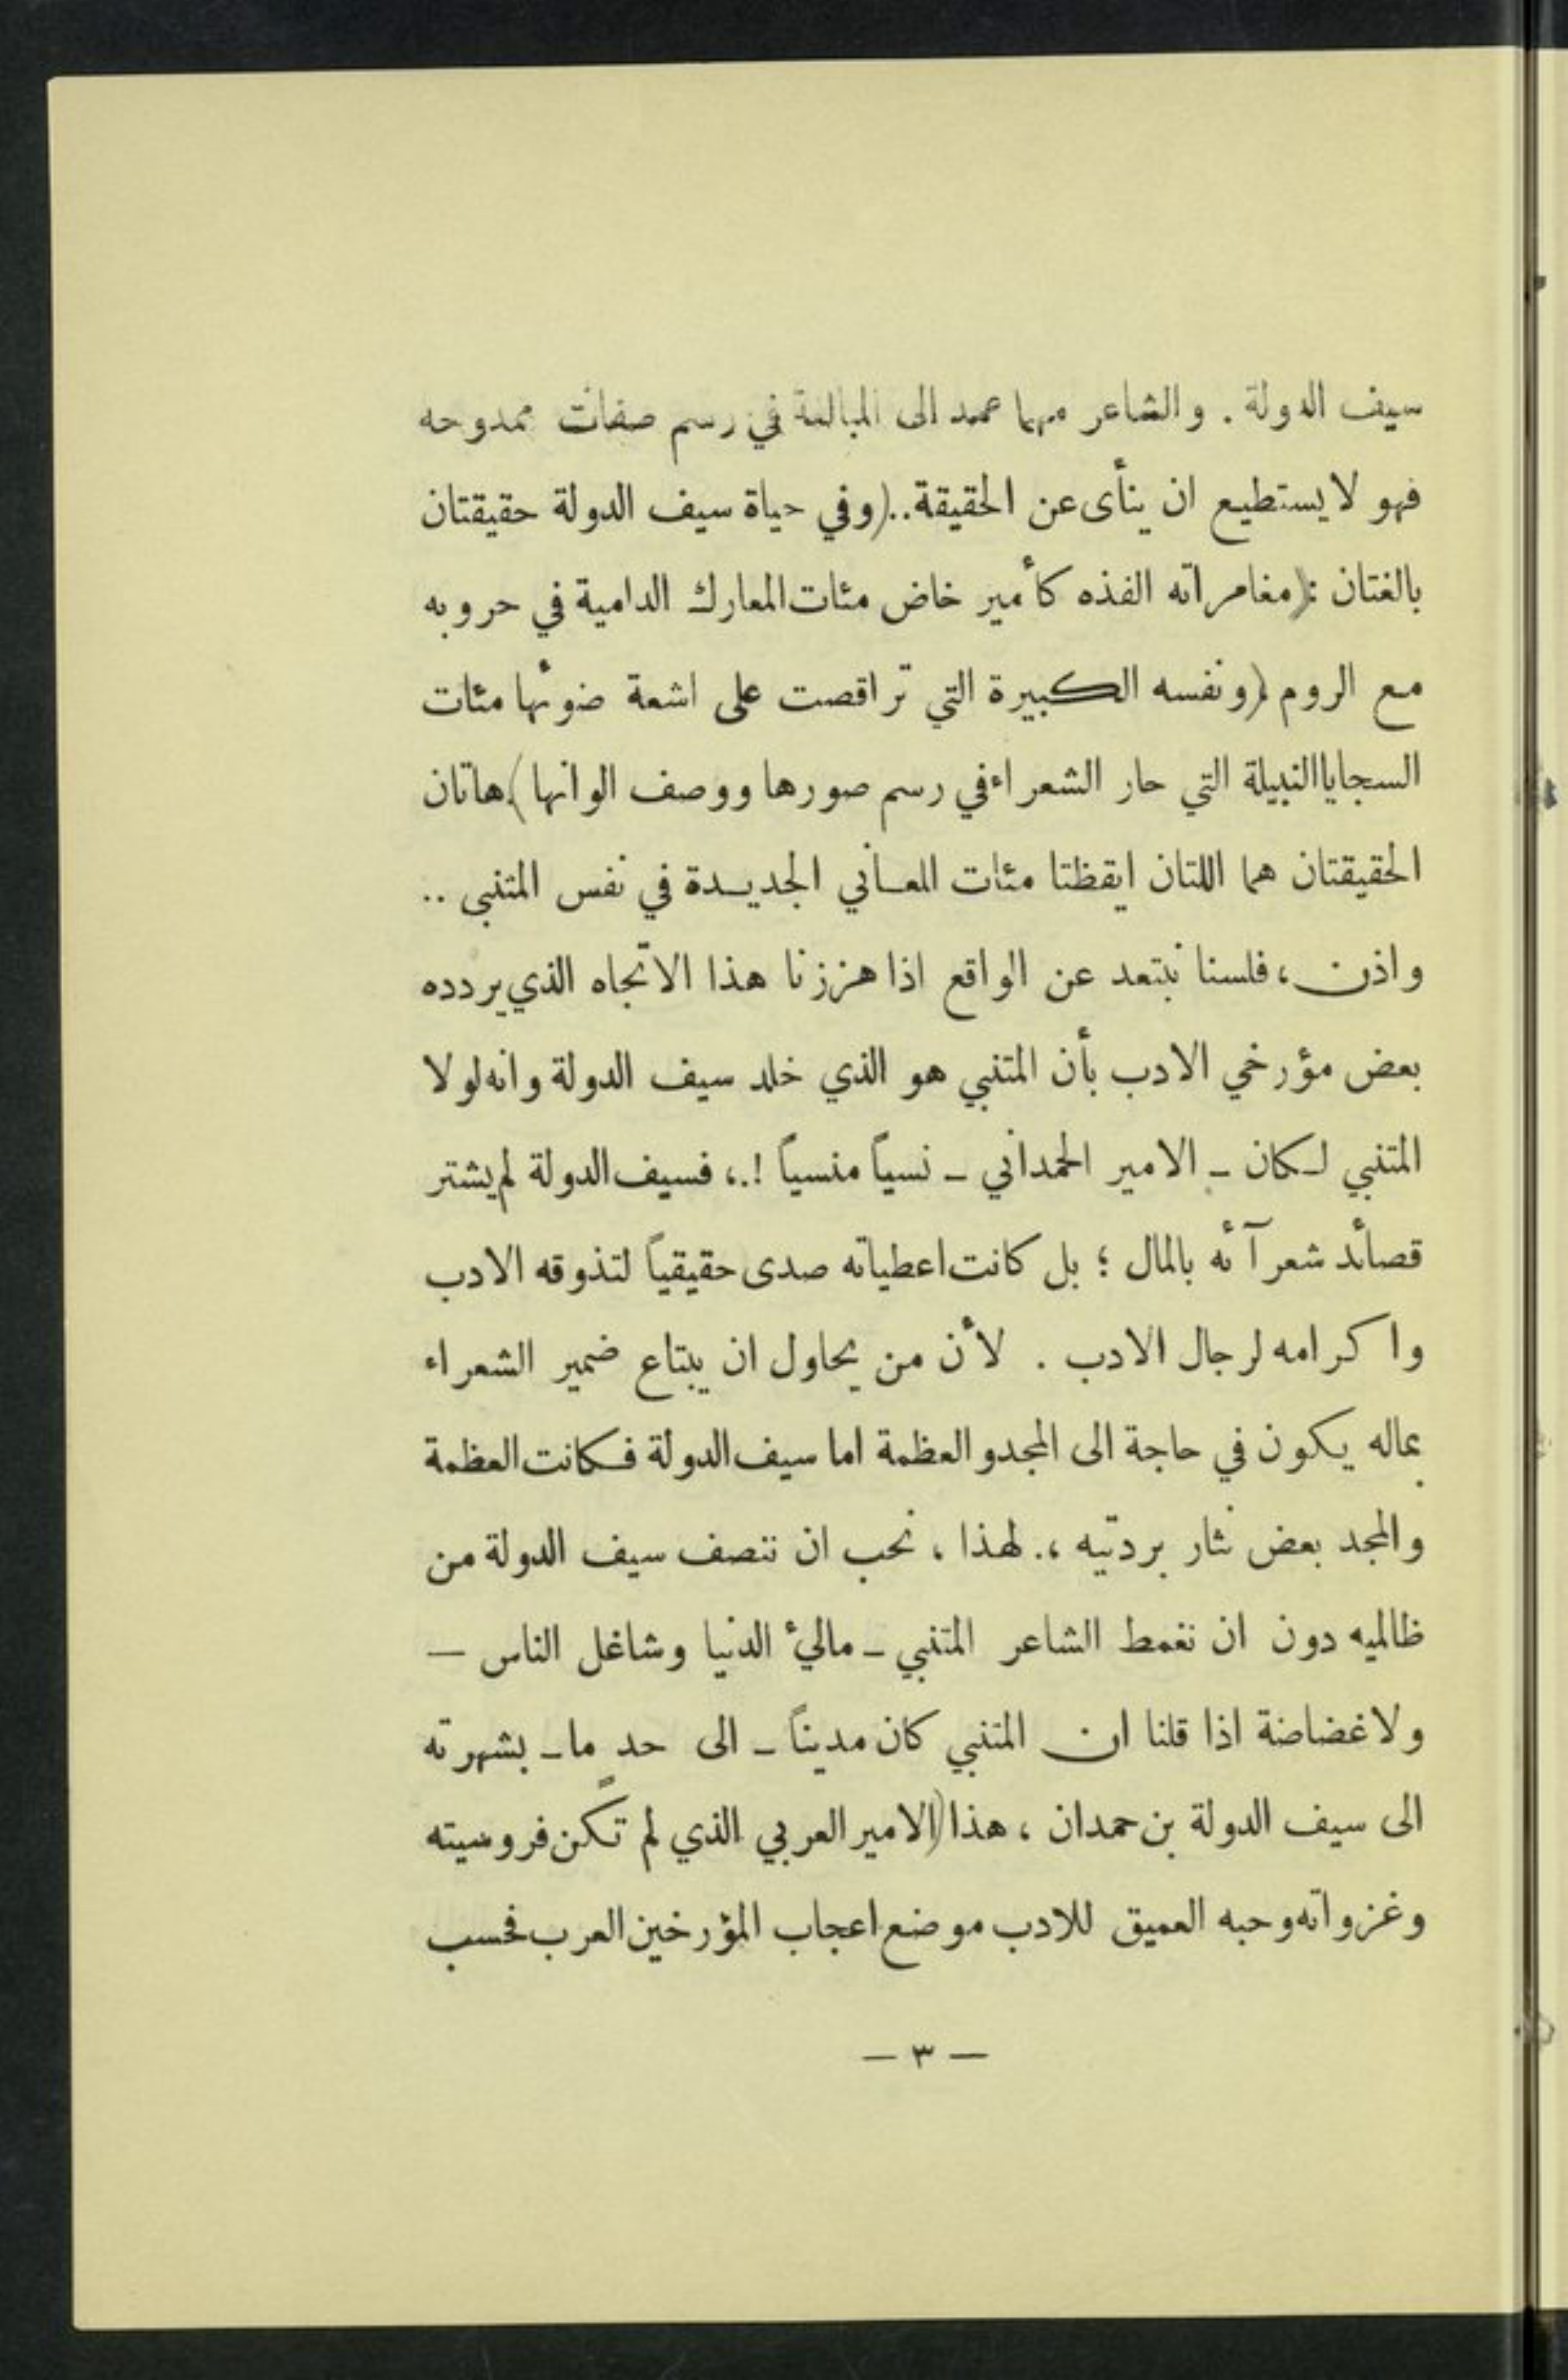 سيف الدولة . والشاعر مهما عمد الى المبالغة في رسم صفات ممدوحه
فهو لا يستطيع ان ينأى عن الحقيقة..(وفي حياة سيف الدولة حقيقتان
بالغتان :(مغامراته الفذه كأمير خاض مئات المعارك الدامية في حروبه
مع الروم (ونفسه الكبيرة التي تراقصت على اشعة ضوئها مئات
السجايا النبيلة التي حار الشعراء في رسم صورها ووصف الوانها).هاتان
الحقيقتان هما اللتان ايقظتا مئات المعاني الجديدة في نفس المتنبي ..
واذن ، فلسنا نبتعد عن الواقع اذا هززنا هذا الاتجاه الذي يردده
بعض مؤرخي الادب بأن المتنبي هو الذي خلد سيف الدولة وانه لولا
المتنبي لكان ـ الامير الحمداني ـ نسياً منسياً !.، فسيف الدولة لم يشتر
قصائد شعرآئه بالمال ؛ بل كانت اعطياته صدى حقيقياً لتذوقه الادب
واكرامه لرجال الادب . لأن من يحاول ان يبتاع ضمير الشعراء
بماله يكون في حاجة الى المجد والعظمة اما سيف الدولة فكانت العظمة
والمجد بعض نثار بردتيه ،. لهذا ، نحب ان ننصف سيف الدولة من
ظالميه دون ان نغمط الشاعر المتنبي ـ ماليء الدنيا وشاغل الناس —
ولا غضاضة اذا قلنا ان المتنبي كان مديناً ـ الى حدٍ ما ـ بشهرته
الى سيف الدولة بن حمدان ، هذا (الامير العربي الذي لم تكن فروسيته
وغزواته وحبه العميق للادب موضع اعجاب المؤرخين العرب فحسب
— ٣ —